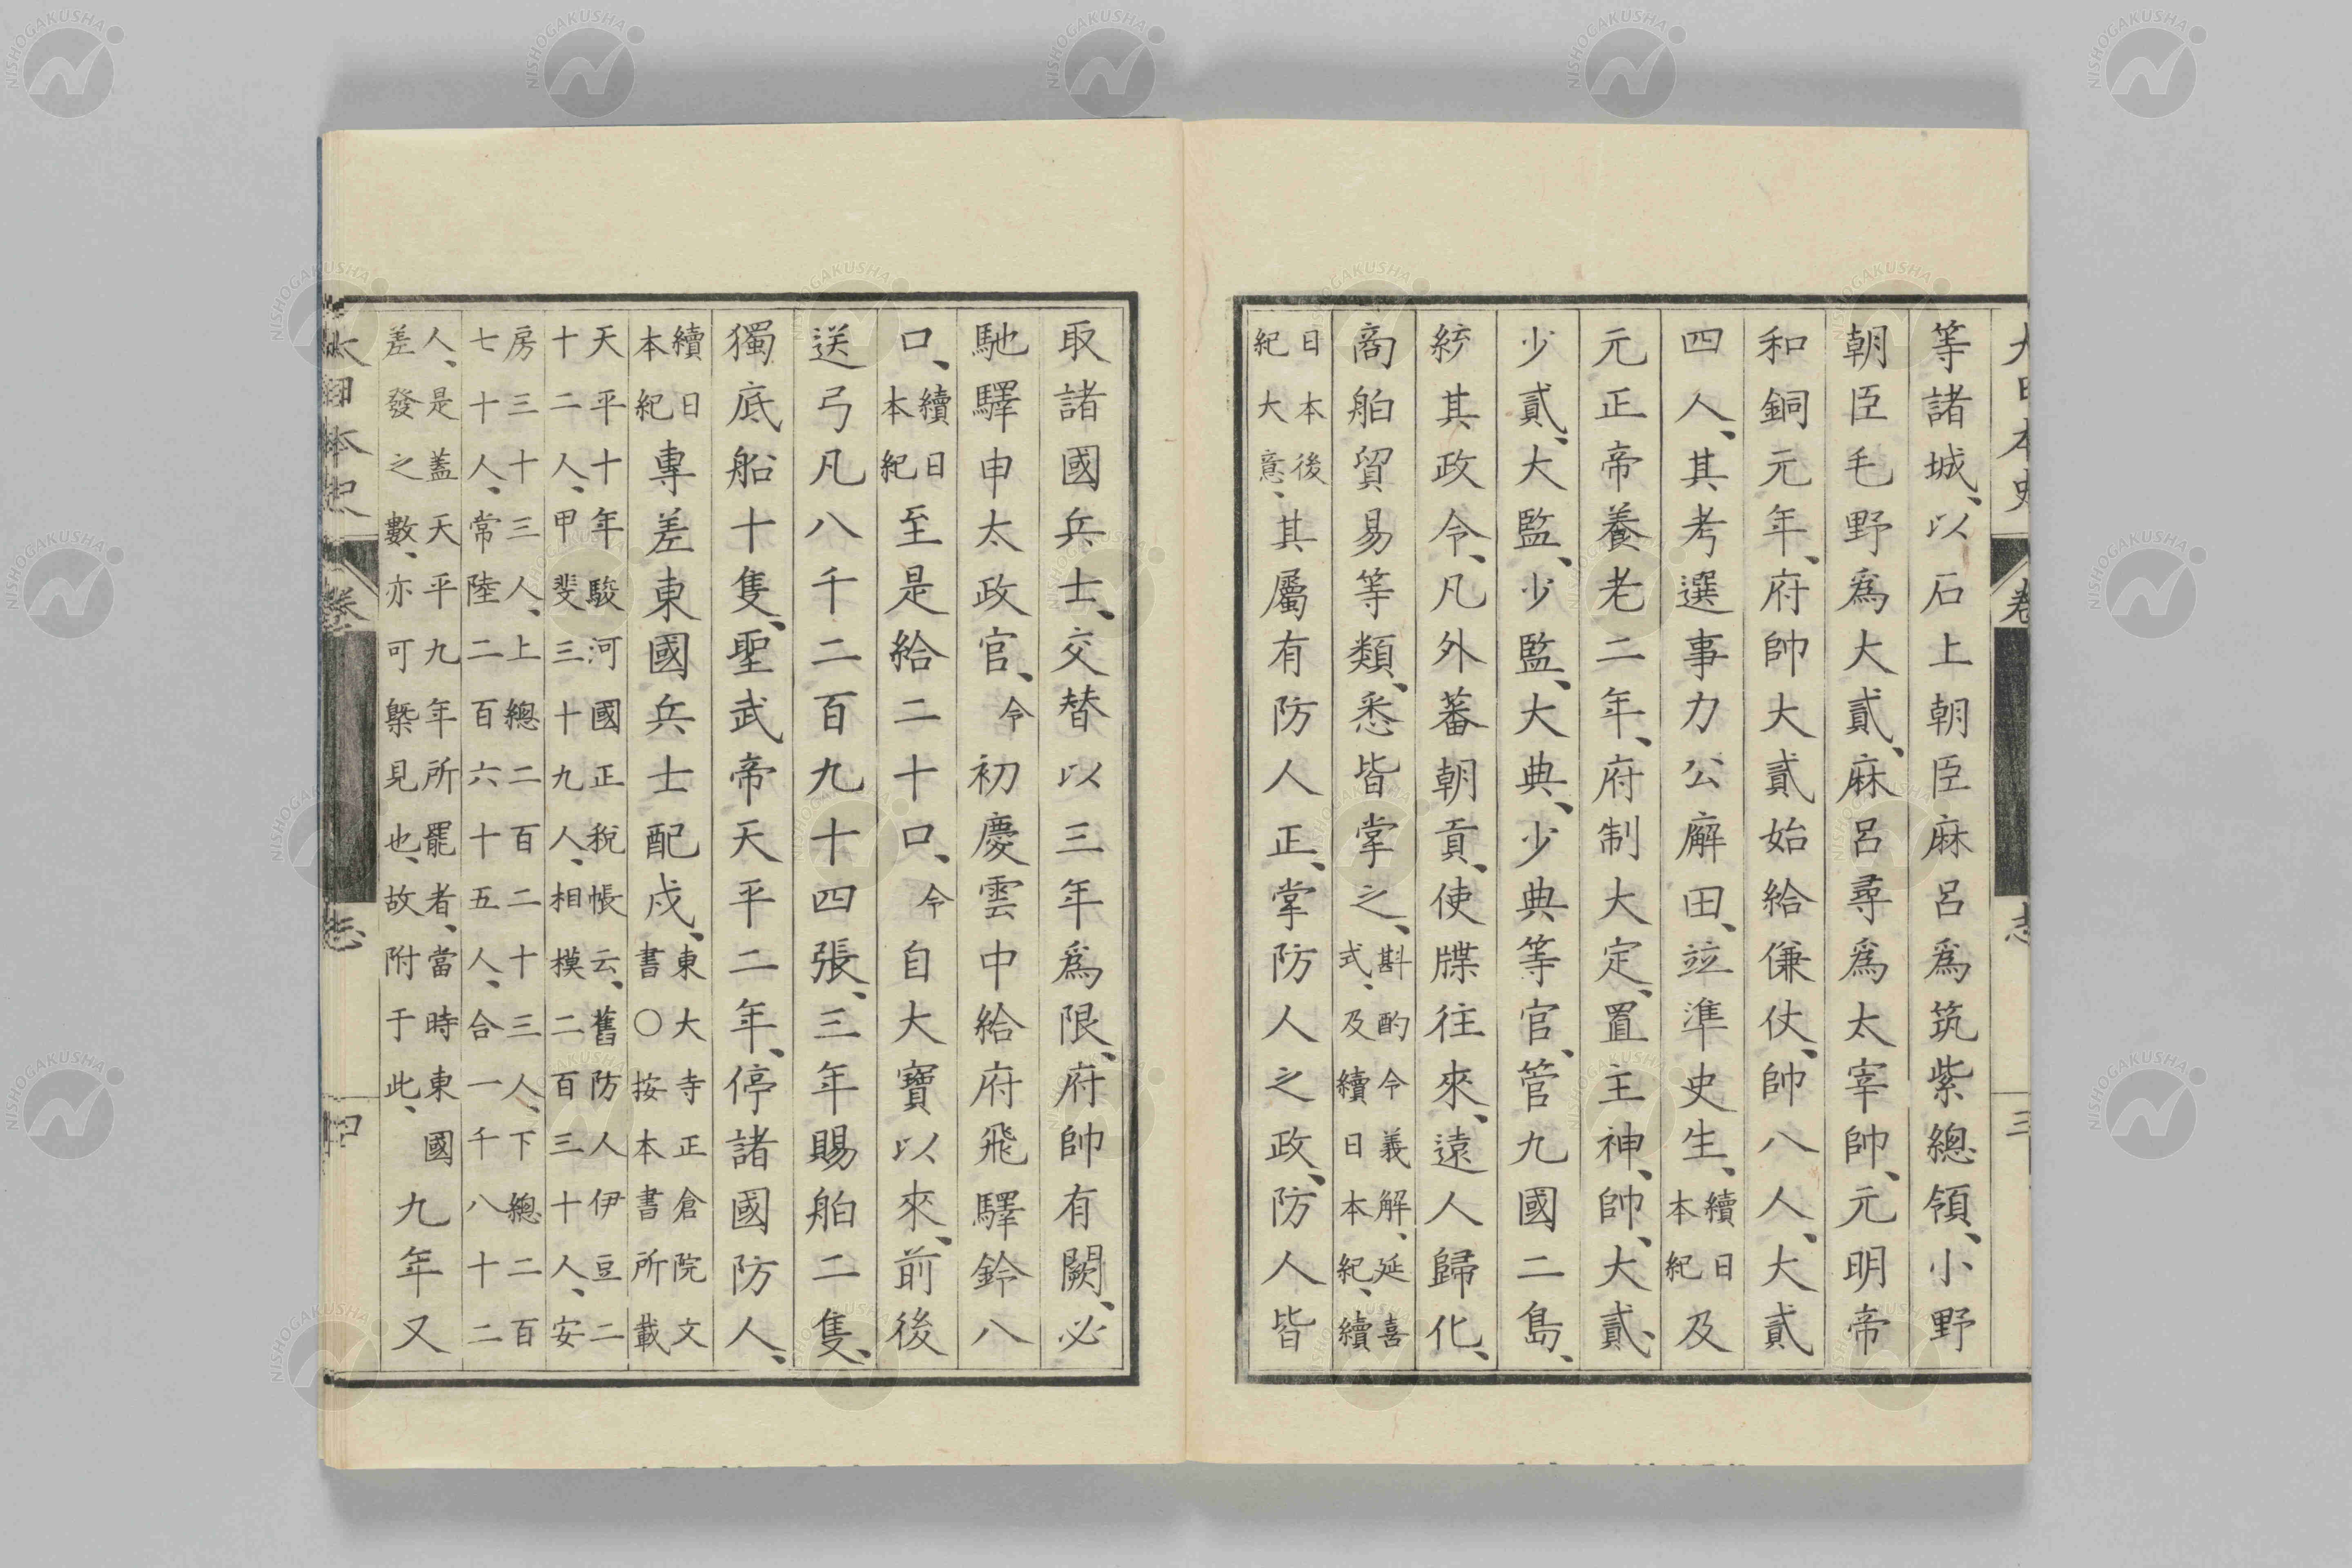 大日本史 卷 志 三
等諸城、以石上朝臣麻呂爲筑紫總領、小野
朝臣毛野爲大貳、麻呂尋爲太宰帥、元明帝
和銅元年、府帥大貳始給傔仗、帥八人、大貳
四人、其考選事力公廨田、竝準史生、續日本紀及
元正帝養老二年、府制大定、置主神、帥、大貳、
少貳、大監、少監、大典、少典等官、管九國二島、
統其政令、凡外蕃朝貢、使牒往來、遠人歸化、
商舶貿易等類、悉皆掌之、斟酌令義解、延喜式、及續日本紀、續
日本後紀大意、其屬有防人正、掌防人之政、防人皆
取諸國兵士、交替以三年爲限、府帥有闕、必
馳驛申太政官、令初慶雲中給府飛驛鈴八
口、續日本紀至是給二十口、令自大寶以來、前後
送弓凡八千二百九十四張、三年賜舶二隻、
獨底船十隻、聖武帝天平二年、停諸國防人、
續日本紀專差東國兵士配戍、東大寺正倉院文書〇按本書所載
天平十年駿河國正稅帳云、舊防人伊豆二十二人、甲斐三十九人、相模二百三十人、安
房三十三人、上總二百二十三人、下總二百七十人、常陸二百六十五人、合一千八十二
人、是蓋天平九年所罷者、當時東國差發之數、亦可槩見也、故附于此、九年又
大日本史 卷 志 四
NISHOGAKUSHA